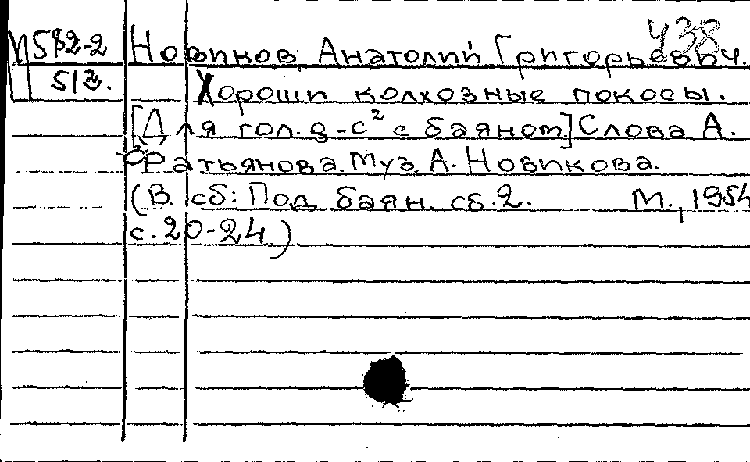 438
П582-2 Новиков, Анатолий Григорьевич.
513. Хороши колхозные покосы.
[Для гол. g-c² с баяном] Слова А.
Фатьянова. Муз. А. Новикова.
(В. сб: Под баян. сб. 2. М., 1954
с. 20-24.)